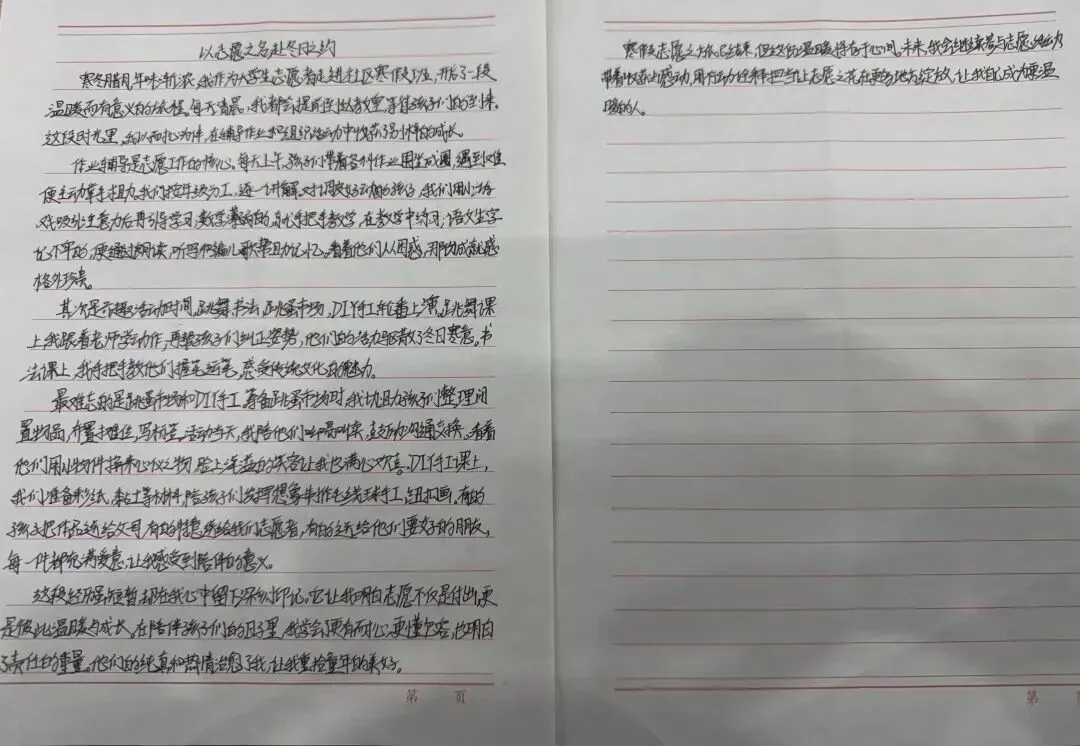 以志愿之名赴冬日之约
寒冬腊月,年味渐浓,我作为大学生志愿者走进社区寒假工益,开启了一段
温暖而有意义的旅程。每天清晨,我都会提前到达教室,等待孩子们的到来。
这段时光里,我以耐心为伴,在辅导作业和组织活动中收获了别样的成长。
作业辅导是志愿工作的核心。每天上午,孩子们带着各科作业围坐成圈,遇到难
便主动举手相助。我们按年级分工,逐一讲解。对调皮好动的孩子,我们用小游
戏吸引注意力后再引导学习;数学薄弱的,就手把手教学,在教学中练习;语文生字
记不牢的,便通过朗读,听写和编儿歌帮助记忆。看着他们从困惑,那份成就感
格外珍贵。
其次是兴趣活动时间,跳舞、书法、跳蚤市场、DIY手工轮番上演。跳舞课
上,我跟着老师学动作,再帮孩子们纠正姿势,他们的活力驱散了冬日寒意。书
法课上,我手把手教他们握笔运笔,感受传统文化的魅力。
最难忘的是跳蚤市场和DIY手工。筹备跳蚤市场时,我协助孩子们整理闲
置物品,布置摊位,写标签。活动当天,我陪他们吆喝叫卖,鼓励沟通交换。看着
他们用小物件换来心仪之物,脸上洋溢的笑容让我也满心欢喜。DIY手工课上,
我们准备彩纸、黏土等材料,陪孩子们发挥想象制作毛线球手工,纽扣画。有的
孩子把作品送给父母,有的特意送给我们志愿者,有的送给他们要好的朋友,
每一件都充满爱意,让我感受到陪伴的意义。
这段经历虽短暂,却在我心中留下深刻印记。它让我明白志愿不仅是付出,更
是彼此温暖与成长。在陪伴孩子们的日子里,我学会了更有耐心,更懂包容,也明白
了责任的重量。他们的纯真和热情治愈了我,让我重拾童年的美好。
第 页
寒假志愿之旅已结束,但这份温暖将存于心间。未来,我会继续参与志愿活动
带着收获与感动,用行动诠释担当,让志愿之花在更多地方绽放,让我自己成为更温
暖的人。
第